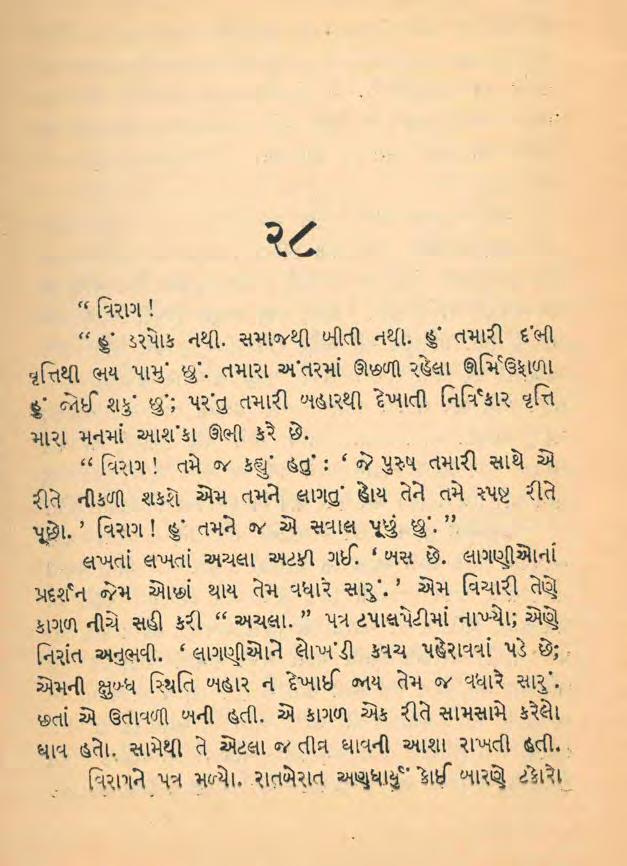 ૨૮
“ વિરાગ !
“ હું ડરપોક નથી. સમાજથી બીતી નથી. હું તમારી દંભી
વૃત્તિથી ભય પામું છું. તમારા અંતરમાં ઊછળી રહેલા ઊર્મિઉફાળા
હું જોઈ શકું છું; પરંતુ તમારી બહારથી દેખાતી નિર્વિકાર વૃત્તિ
મારા મનમાં આશંકા ઊભી કરે છે.
“ વિરાગ ! તમે જ કહ્યું હતું : ‘ જે પુરુષ તમારી સાથે એ
રીતે નીકળી શકશે એમ તમને લાગતું હોય તેને તમે સ્પષ્ટ રીતે
પૂછો. ’ વિરાગ ! હું તમને જ એ સવાલ પૂછું છું. ”
લખતાં લખતાં અચલા અટકી ગઈ. ‘ બસ છે. લાગણીઓનાં
પ્રદર્શન જેમ ઓછાં થાય તેમ વધારે સારું. ’ એમ વિચારી તેણે
કાગળ નીચે સહી કરી “ અચલા. ” પત્ર ટપાલપેટીમાં નાખ્યો; એણે
નિરાંત અનુભવી. ‘ લાગણીઓને લોખંડી કવચ પહેરાવવાં પડે છે;
એમની ક્ષુબ્ધ સ્થિતિ બહાર ન દેખાઈ જાય તેમ જ વધારે સારું.
છતાં એ ઉતાવળી બની હતી. એ કાગળ એક રીતે સામસામે કરેલો
ઘાવ હતો. સામેથી તે એટલા જ તીવ્ર ઘાવની આશા રાખતી હતી.
વિરાગને પત્ર મળ્યો. રાતબેરાત અણધાર્યું કોઈ બારણે ટકોરો